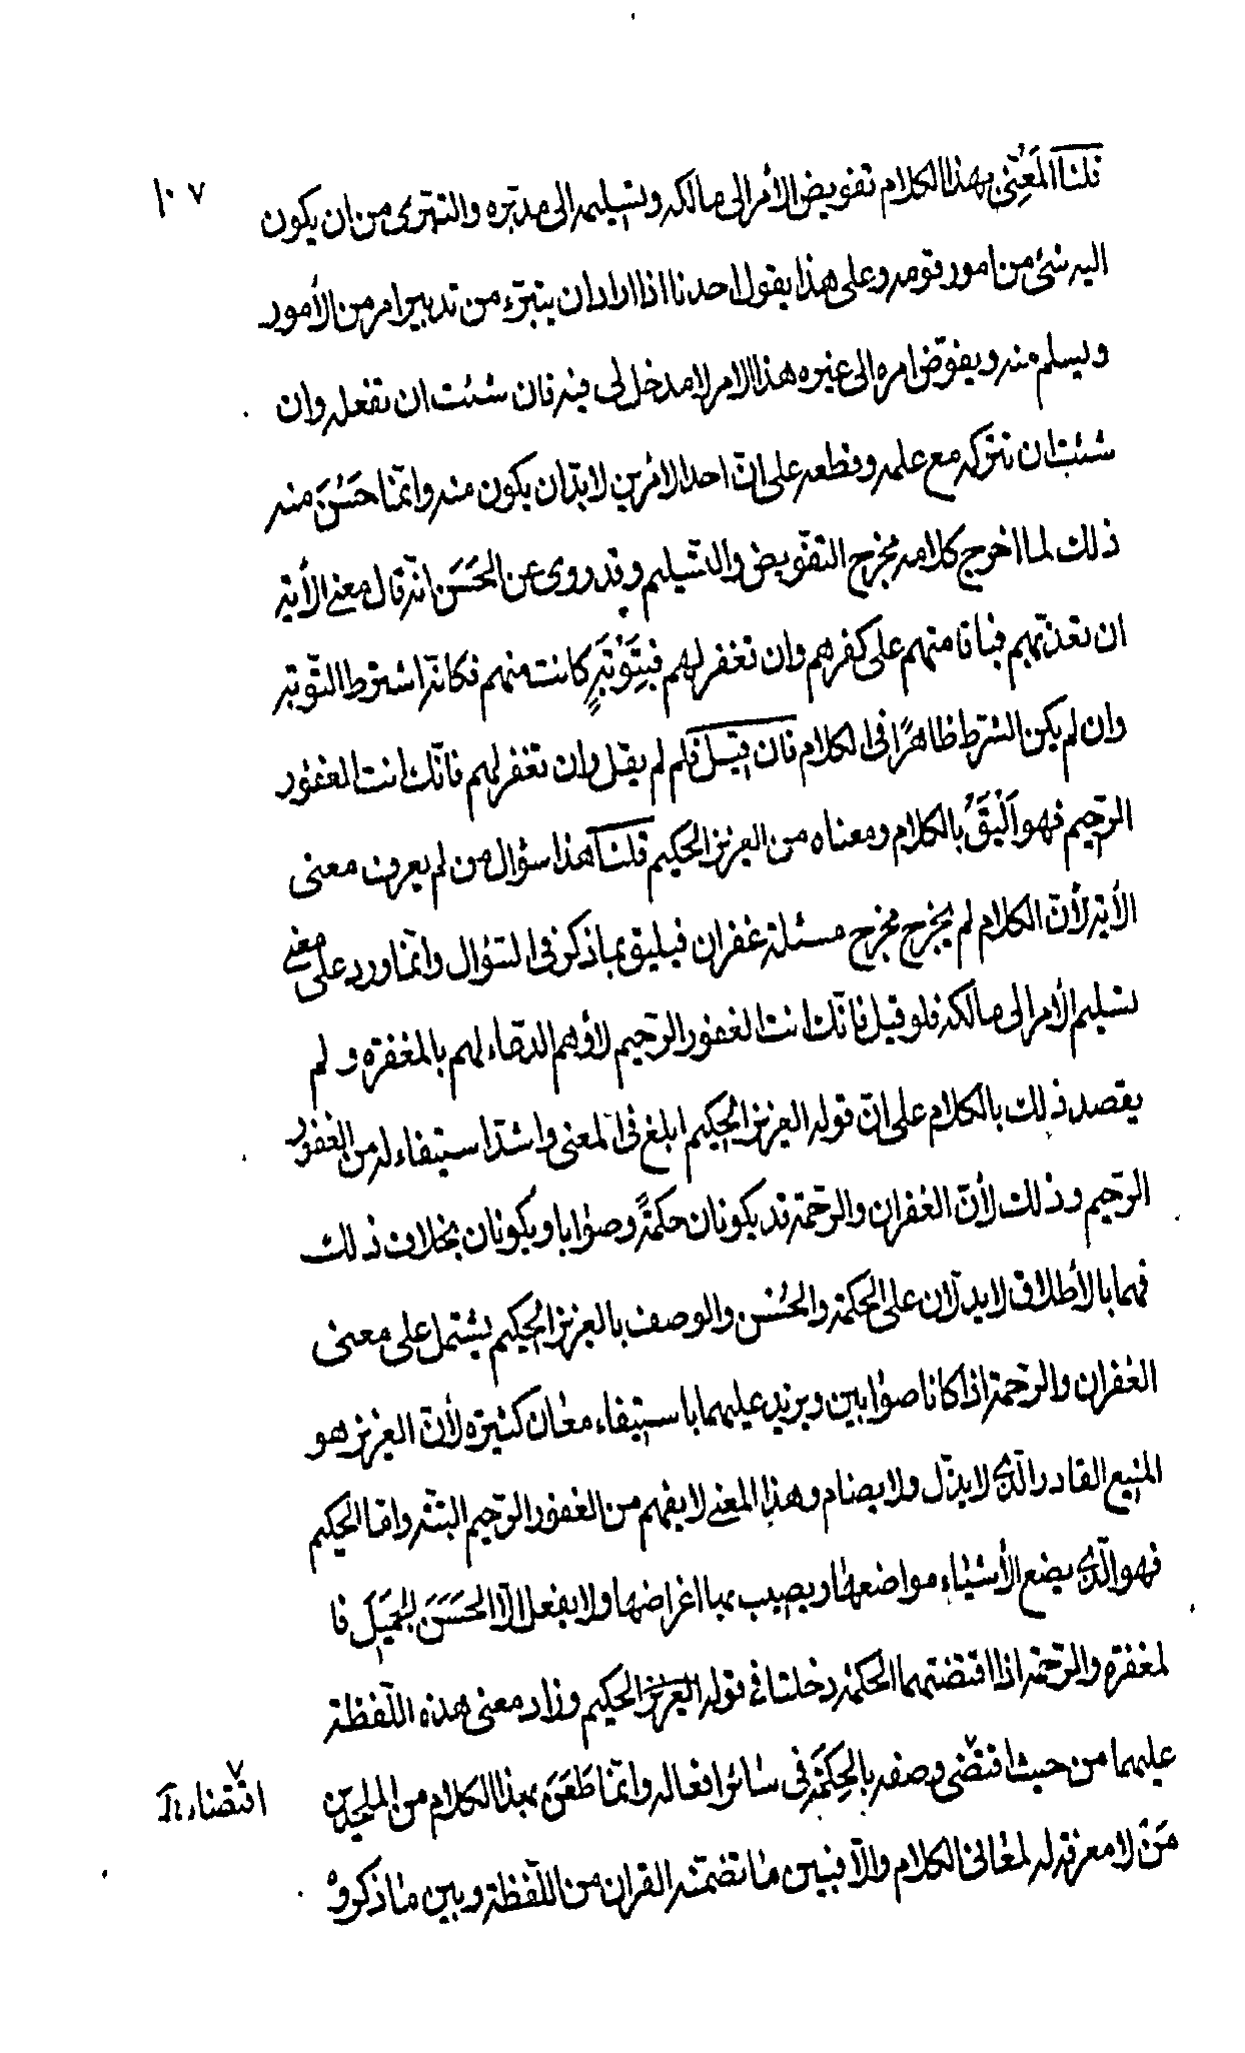 ١٠٧
قلنا المَعْنِىّ بهذا الكلام تفويض الأمر الى مالكه وتسليمه الى مدبّره والتبّرى من ان يكون
اليه شئ من امور قومه وعلى هذا يقول احدنا اذا اراد ان يتبرّء من تدبير امر من الأمور
ويسلم منه ويفوّض امره الى غيره هذا الامر لا مدخل لى فيه فان شئت ان تفعله وان
شئت ان تتركه مع علمه وقطعه على انّ احد الامرين لابدّ ان يكون منه وانّما حَسُنَ منه
ذلك لما اخرج كلامه مخرج التفّويض والتسّليم وقد روى عن الحَسَن انّه قال معنى الأية
ان تعذّبهم فباقامتهم على كفرهم وان تغفر لهم فبِتَوْبَةٍ كانت منهم فكانّه اشترط التّوبة
وان لم يكن الشرط ظاهرًا فى الكلام فان قيل فلم لم يقل وان تغفر لهم فانّك انت الغفور
الرّحيم فهو اَلْيَقُ بالكلام ومعناه من العزيز الحكيم قلنا هذا سؤال من لم يعرف معنى
الأية لأنّ الكلام لم يخرج مخرج مسئلة غفران فيليق بما ذكر فى السّؤال وانّما ورد على معنى
تسليم الأمر الى مالكه فلو قيل فانّك انت الغفور الرّحيم لأوهم الدّعاء لهم بالمغفرة و لم
يقصد ذلك بالكلام على انّ قوله العزيز الحكيم ابلغ فى المعنى واشدّ استيفاء له من الغفور
الرّحيم وذلك لأنّ الغفران والرّحمة قد يكونان حكمةً وصوابا ويكونان بخلاف ذلك
فهما بالأطلاق لا يدلّان على الحكمة والحُسْن والوصف بالعزيز الحكيم يشتمل على معنى
الغفران والرّحمة اذا كانا صوابين ويزيد عليهما باستيفاء معان كثيرة لأنّ العزيز هو
المنيع القادر الّذى لا يذّل ولا يضام وهذا المعنى لا يفهم من الغفور الرّحيم البتّة وامّا الحكيم
فهو الّذى يضع الأشياء مواضعها ويصيب بها اغراضها ولا يفعل الّا الحَسَنَ الجميلَ فا
لمغفرة والرّحمة اذا اقتضتهما الحكمة دخلتا فى قوله العزيز الحكيم وزاد معنى هذه اللّفظة
عليهما من حيث اقتضى وصفه بالحِكمَة فى سائر افعاله وانّما طَعَنَ بهذا الكلام من الملحدين
اقتضاء
مَنْ لا معرفة له لمعانى الكلام والّا فبين ما تضمّنه القران من اللّفظة وبين ما ذكروْ